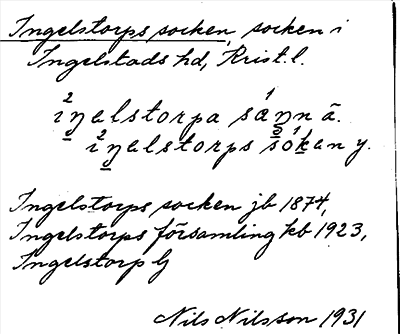 Ingelstorps socken, socken i
Ingelstads hd, Krist. l.
iŋəlstorpa sanna ä.
iŋəlstorps sokən y.
Ingelstorps socken jb 1874,
Ingelstorps församling kb 1923,
Ingelstorp lj
Nils Nilsson 1931